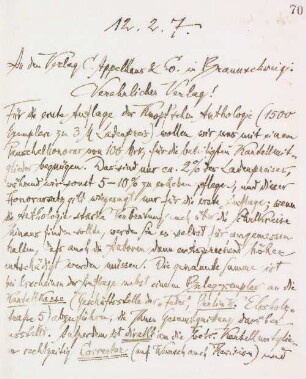 70
12. 2. 7.
An den Verlag C. Appelhans & Co. in Braunschweig.
Verehrlicher Verlag!
Für die erste Auflage der Anthologie (1500
Exemplare zu 3 M Ladenpreis) wollen wir uns mit einem
Pauschalhonorar von 100 Mk. für die beteiligten Kartellmit-
glieder begnügen. Das sind nur ca. 2% des Ladenpreises,
während wir sonst 5–10% zu erheben pflegen, und dieser
Honorarsatz gilt wohlgemerkt nur für die erste Auflage; wenn
die Anthologie starke Verbreitung auch über die Schulkreise
hinaus finden sollte, werden Sie es selbst für angemessen
halten, daß auch die Autoren dann entsprechend höher
entschädigt werden müssen. Die genannte Summe ist
bei Erscheinen der Auflage nebst einem Belegexemplar an die
Kartellkasse (Geschäftsstelle der Berlin
5) abzuführen, die Ihnen
. Außerdem ist direkt an die Kartellmitglie-
der rechtzeitig Correctur (auf Wunsch auch Revision) und